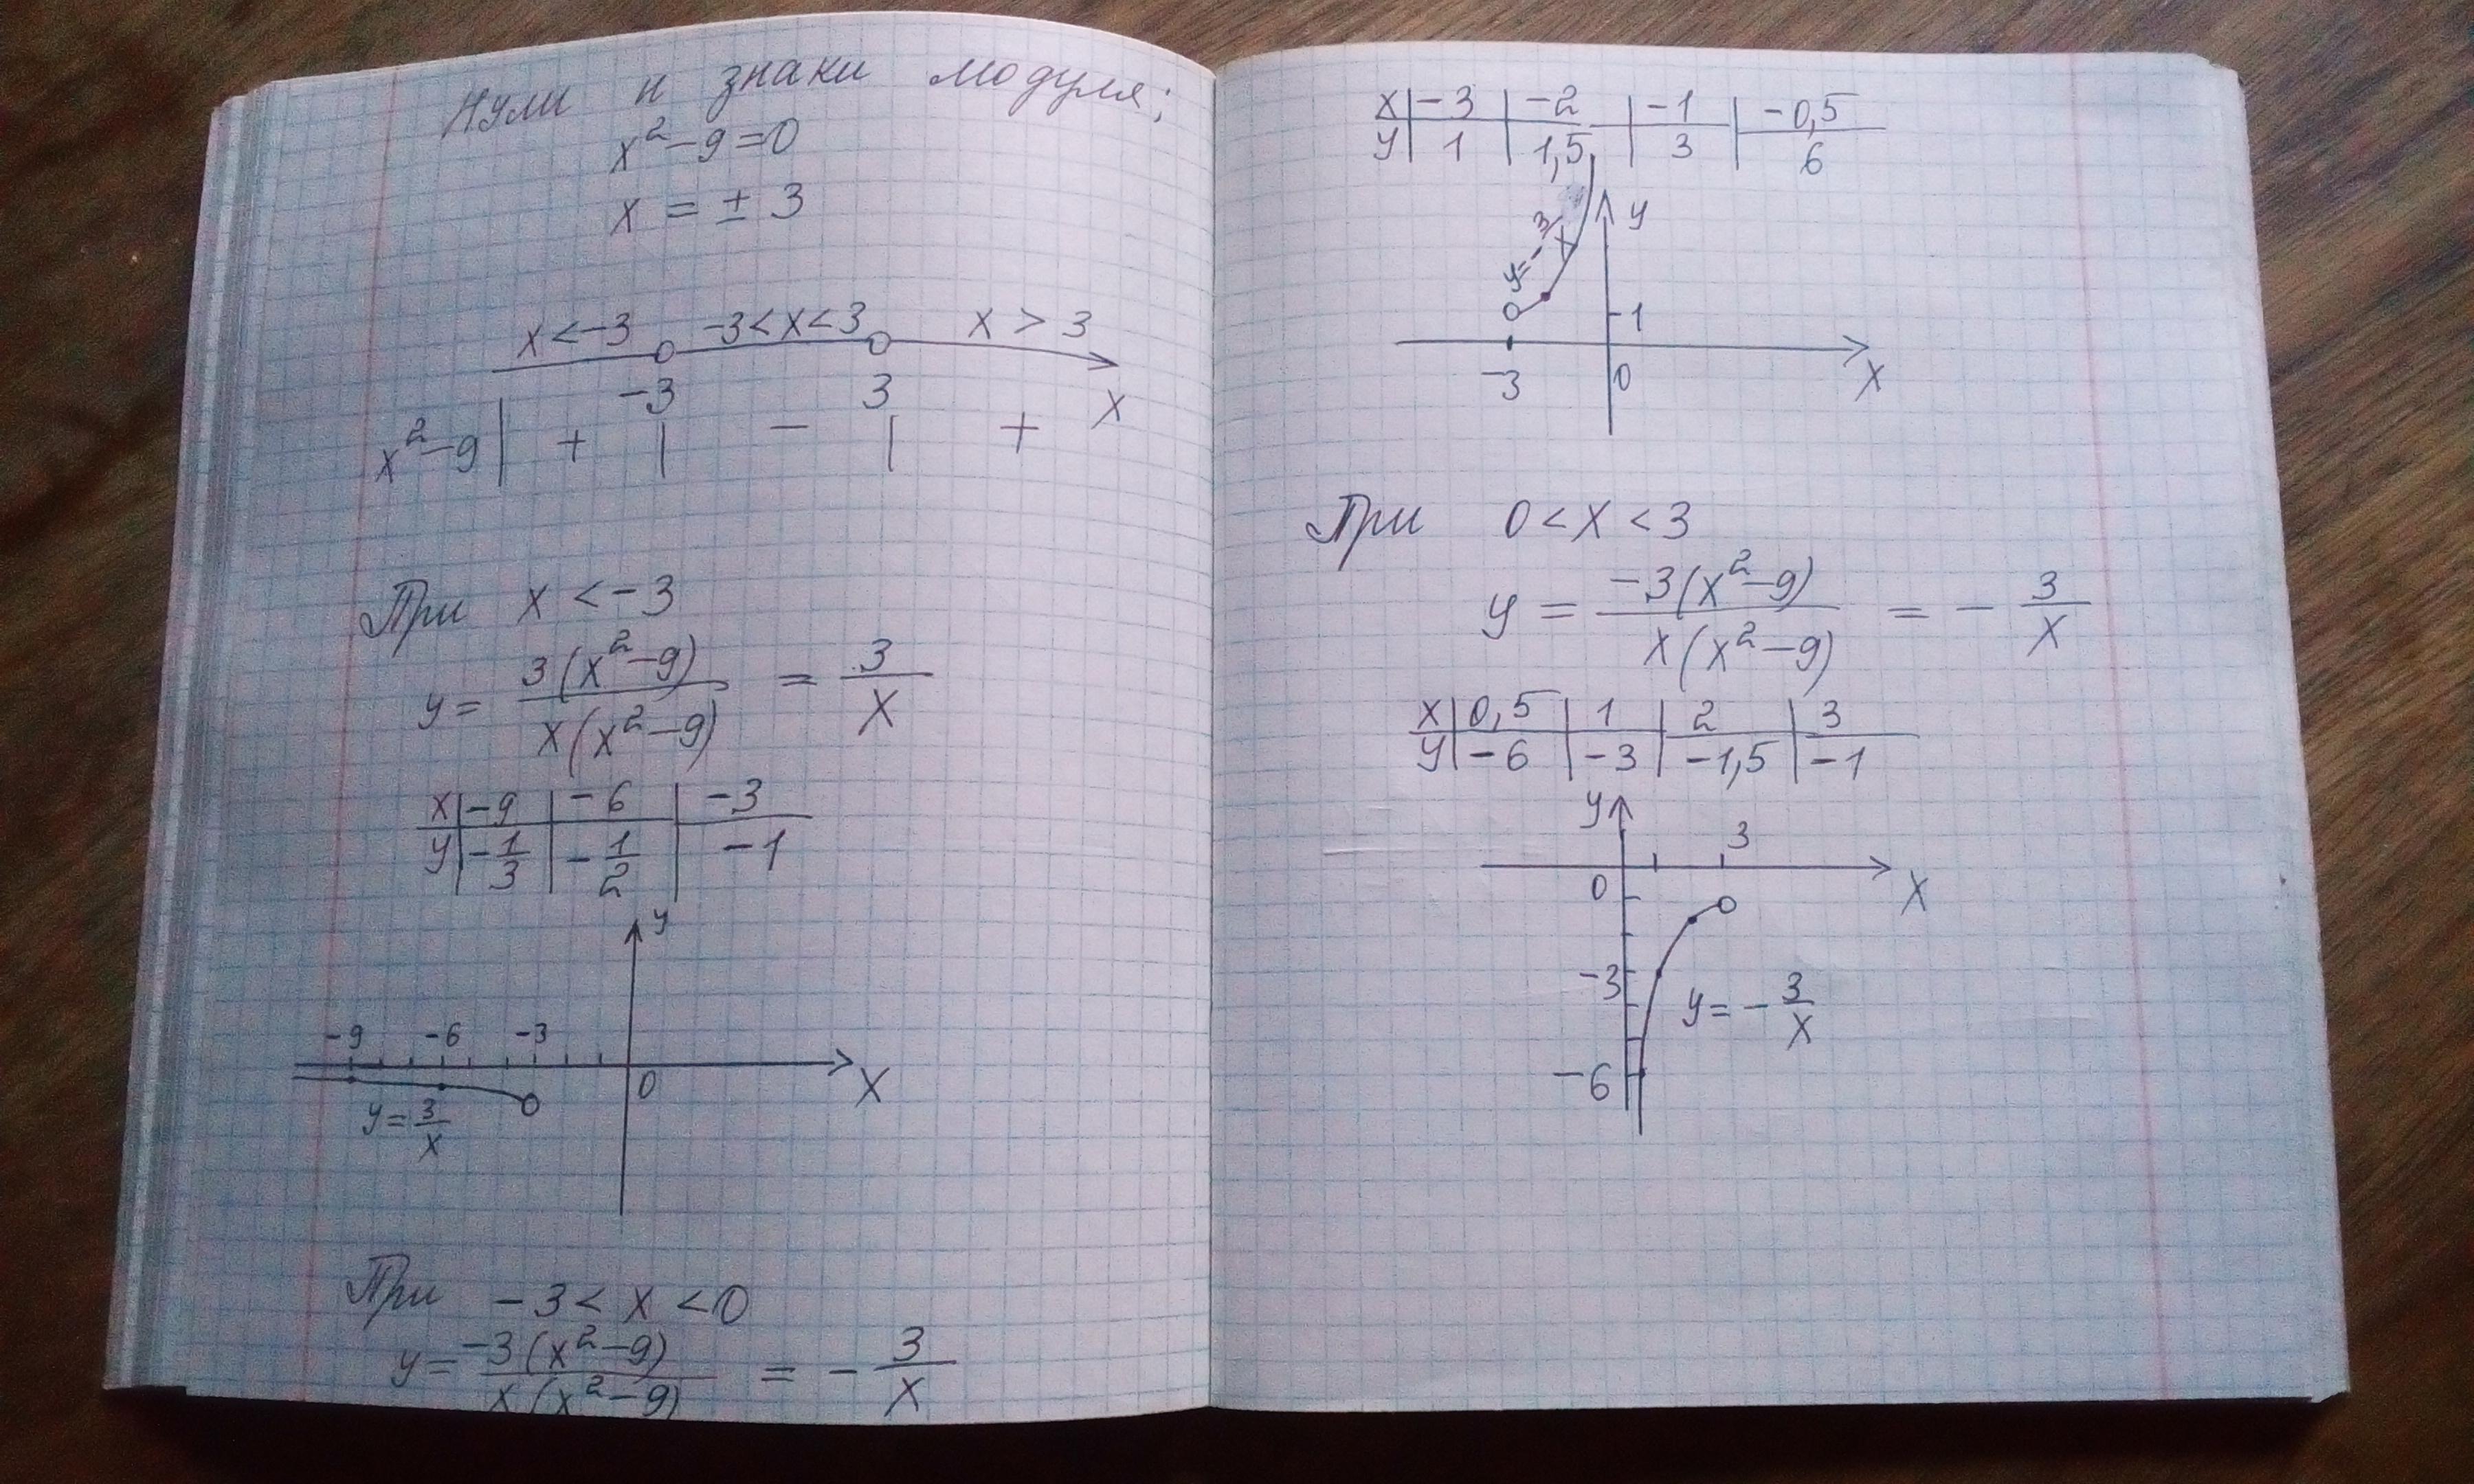 Нули и знаки модуля;
x²-9=0
x = ± 3
x<-3 -3<x<3 x > 3
-3 3 x
x²-9 | + | - | +
При x <-3
y = 3(x²-9) / x(x²-9) = 3/x
x | -9 | -6 | -3
y | -1/3 | -1/2 | -1
y
-9 -6 -3
0 x
y = 3/x
При -3 < x < 0
y = -3(x²-9) / x(x²-9) = - 3/x
x | -3 | -2 | -1 | -0,5
y | 1 | 1,5 | 3 | 6
y
y = - 3/x
1
-3 0 x
При 0 < x < 3
y = -3(x²-9) / x(x²-9) = - 3/x
x | 0,5 | 1 | 2 | 3
y | -6 | -3 | -1,5 | -1
y
3
0 x
-3
y = - 3/x
-6